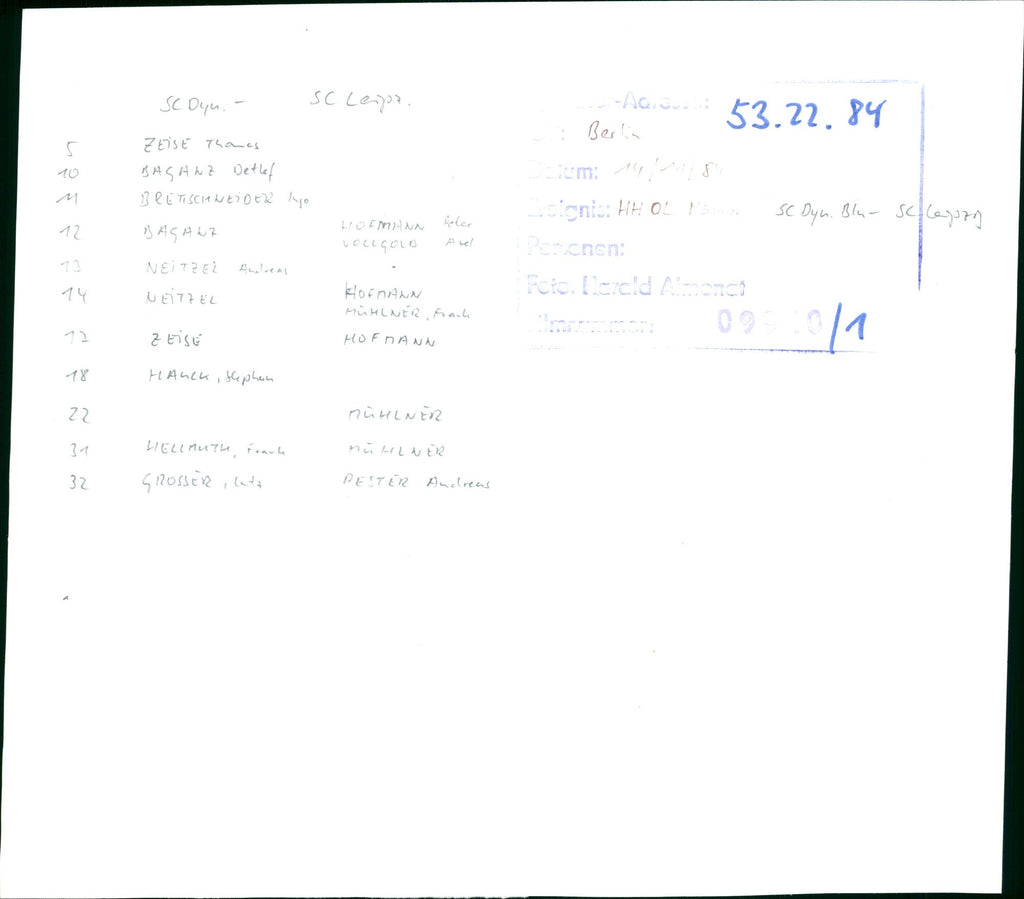 SC Dyn. - SC Leipz.
5 ZEISE Thomas
10 BAGANZ Detlef
11 BRETSCHNEIDER Ingo
12 BAGANZ HOFMANN Peter
VOLLGOLD Axel
13 NEITZEL Andreas
14 NEITZEL HOFMANN
MÜHLNER, Frank
17 ZEISE HOFMANN
18 HAUCK, Stephan
22 MÜHLNER
31 HELLMUTH, Frank MÜHLNER
32 GROSSER, Lutz PESTER Andreas
-Adresse: 53.22.84
Ort: Berlin
Datum: 14/11/84
Ereignis: HH OL Männ. SC Dyn. Bln - SC Leipzig
Personen:
Foto: Harald Almonat
Filmnummer: /1